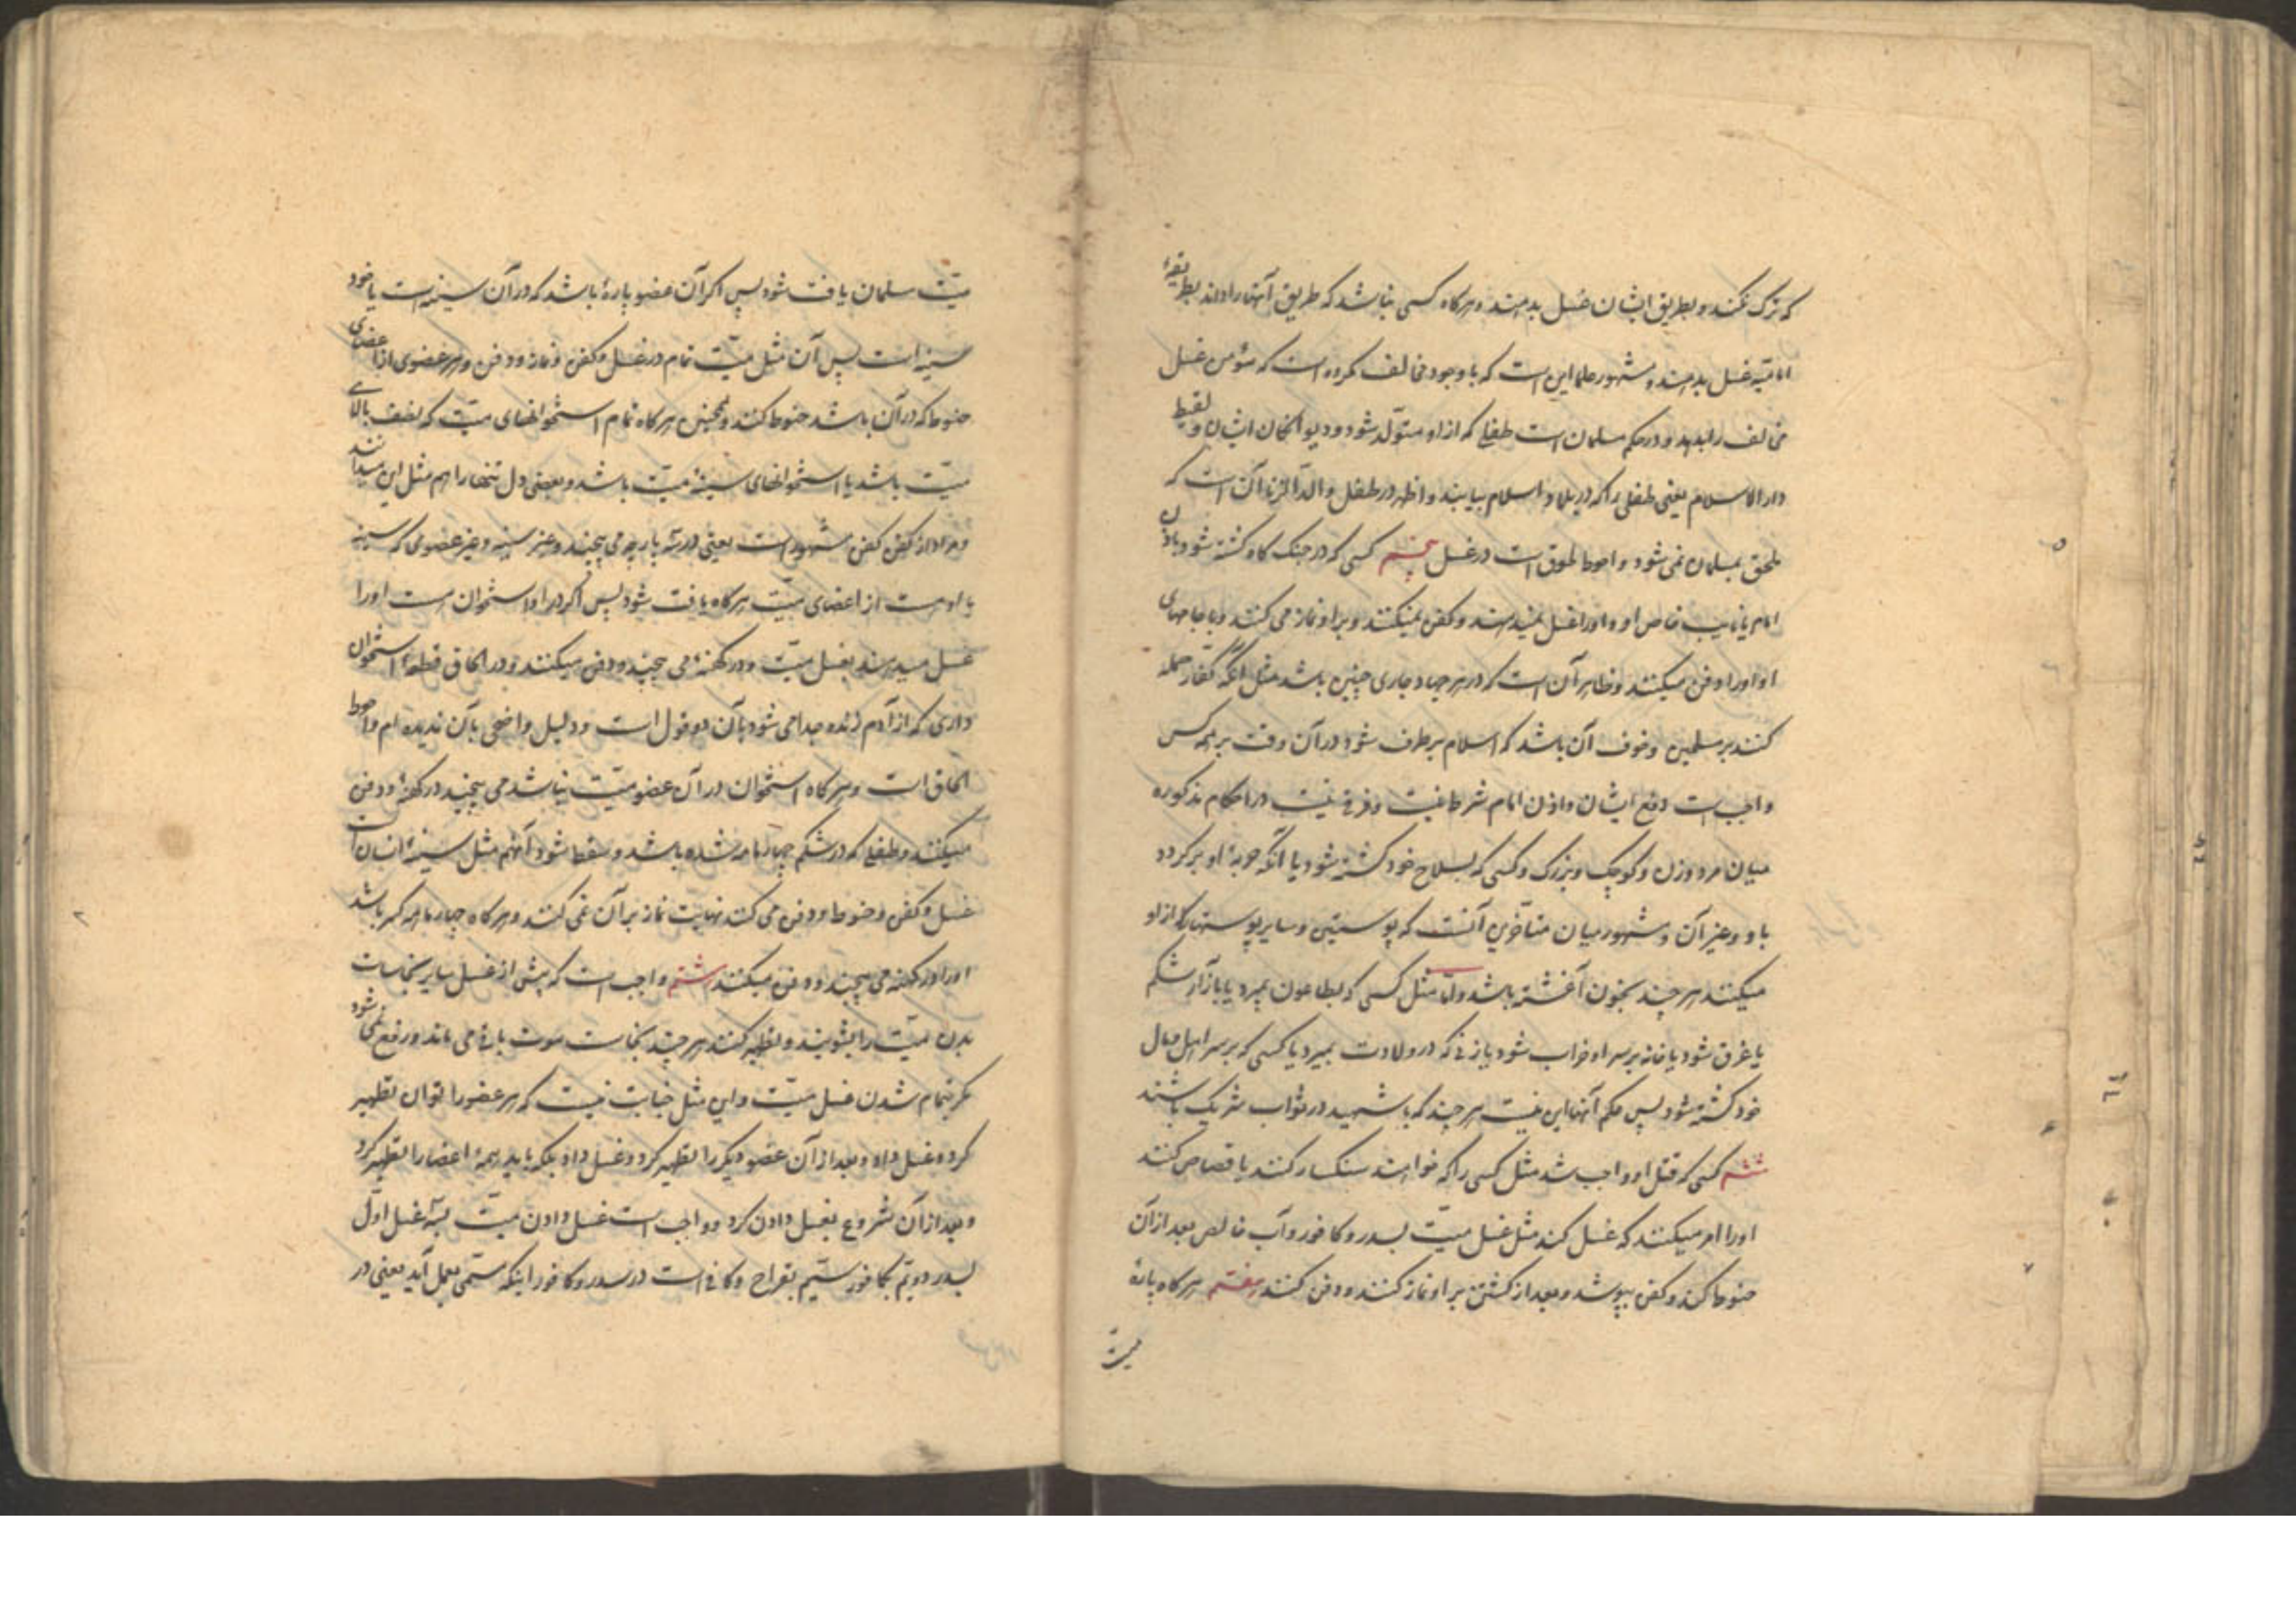 که ترک نکند و بطریق ایشان غسل بدهند و هرکاه کسی نباشد که طریق آنها را داند بطریقهٔ
امامیه غسل بدهند و مشهور علما این است که با وجود مخالف مکروه است که مؤمن غسل
مخالف را بدهد و در حکم مسلمان است طفلی که از او متولّد شود و دیوانکان ایشان و لقیط
دار الاسلام یعنی طفلی را که در بلاد اسلام بیابند و اظهر در طفل والد الزنا آن است که
ملحق بمسلمان نمی شود و احوط لحوق است در غسل پنجم کسی که در جنک کاه کشته شود باذن
امام یا نایب خاص او و او را غسل نمیدهند و کفن نمیکنند و بر او نماز می کنند و با جامهای
او او را دفن میکنند و ظاهر آن است که در هر جهاد جاری چنین باشد مثل آنکه کفّار حمله
کنند بر مسلمین و خوف آن باشد که اسلام برطرف شود در آن وقت بر همه کس
واجب است دفع ایشان و اذن امام شرط نیست و فرقی نیست در احکام مذکوره
میان مرد و زن و کوچک و بزرک و کسی که بسلاح خود کشته شود یا آنکه حربهٔ او برکردد
باو و غیر آن و مشهور میان متأخرین آنست که پوستین و سایر پوستها را از او
میکنند هر چند بخون آغشته باشد و امّا مثل کسی که بطاعون بمیرد یا بازار شکم
یا غرق شود یا خانه بر سر او خراب شود یا زنی که در ولادت بمیرد یا کسی که بر سر اهل و مال
خود کشته شود پس حکم آنها این نیست هر چند که با شهید در ثواب شریک باشند
ششم کسی که قتل او واجب شد مثل کسی را که خواهند سنکسار کنند یا قصاص کنند
او را امر میکنند که غسل کند مثل غسل میّت بسدر و کافور و آب خالص بعد از آن
حنوط کند و کفن بپوشد و بعد از کشتن بر او نماز کنند و دفن کنند هفتم هرکاه پارهٔ
میّت
میّت مسلمان یافت شود پس اکر آن عضو پارهٔ باشد که در آن سینه است یا خود
سینه است پس آن مثل میّت تمام در غسل و کفن و نماز و دفن و هر عضوی از اعضای
حنوط که در آن باشد حنوط کنند و همچنین هرکاه تمام استخوانهای میّت که نصف بالای
میّت باشد یا استخوانهای سینهٔ میّت باشد و بعضی دل تنها را هم مثل این میدانند
و مراد از کفن کفن مشهور است یعنی در سه پارچه می پیچند و غیر سینه و غیر عضوی که سینه
با اوست از اعضای میّت هرکاه یافت شود پس اکر در او استخوان هست او را
غسل میدهند بغسل میّت و در کهنهٔ می پیچند و دفن میکنند و در الحاق قطعهٔ استخوان
داری که از آدم زنده جدا می شود بآن دو قول است و دلیل واضحی بآن ندیده ام و احوط
الحاق است و هرکاه استخوان در آن عضو میّت نباشد می پیچند در کهنهٔ و دفن
میکنند و طفلی که در شکم چهار ماهه شده باشد و سقط شود آنهم مثل سینهٔ انسان است
غسل و کفن و حنوط و دفن می کنند نهایت نماز بر آن نمی کنند و هرکاه چهار ماهه کمتر باشد
او را در کهنه می پیچند و دفن میکنند هشتم واجب است که پیش از غسل سایر نجاسات
بدن میّت را بشویند و تطهیر کنند هر چند نجاست موت باقی می ماند و رفع نمی شود
مکر بتمام شدن غسل میّت و این مثل جنابت نیست که هر عضو را توان تطهیر
کرد و غسل داد و بعد از آن عضو دیکر را تطهیر کرد و غسل داد بلکه باید همهٔ اعضا را تطهیر کرد
و بعد از آن شروع بغسل دادن کرد و واجب است غسل دادن میّت بسه غسل اوّل
بسدر دویّم بکافور سیّم بقراح و کافی است در سدر و کافور اینکه مسمّی بعمل آید یعنی در